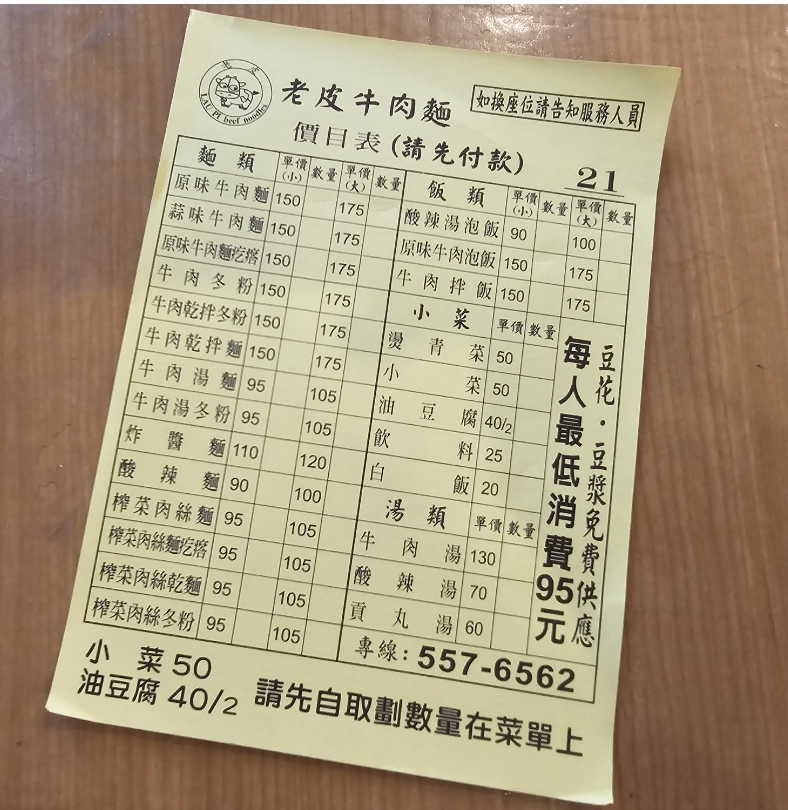 老皮
LAU PI beef noodles
老皮牛肉麵
如換座位請告知服務人員
價目表(請先付款)
21
麵類 單價(小) 數量 單價(大) 數量
原味牛肉麵 150 175
蒜味牛肉麵 150 175
原味牛肉麵疙瘩 150 175
牛肉冬粉 150 175
牛肉乾拌冬粉 150 175
牛肉乾拌麵 150 175
牛肉湯麵 95 105
牛肉湯冬粉 95 105
炸醬麵 110 120
酸辣麵 90 100
榨菜肉絲麵 95 105
榨菜肉絲麵疙瘩 95 105
榨菜肉絲乾麵 95 105
榨菜肉絲冬粉 95 105
飯類 單價(小) 數量 單價(大) 數量
酸辣湯泡飯 90 100
原味牛肉泡飯 150 175
牛肉拌飯 150 175
小菜 單價 數量
燙青菜 50
小菜 50
油豆腐 40/2
飲料 25
白飯 20
湯類 單價 數量
牛肉湯 130
酸辣湯 70
貢丸湯 60
豆花·豆漿免費供應
每人最低消費95元
專線:557-6562
小菜50
油豆腐40/2
請先自取劃數量在菜單上